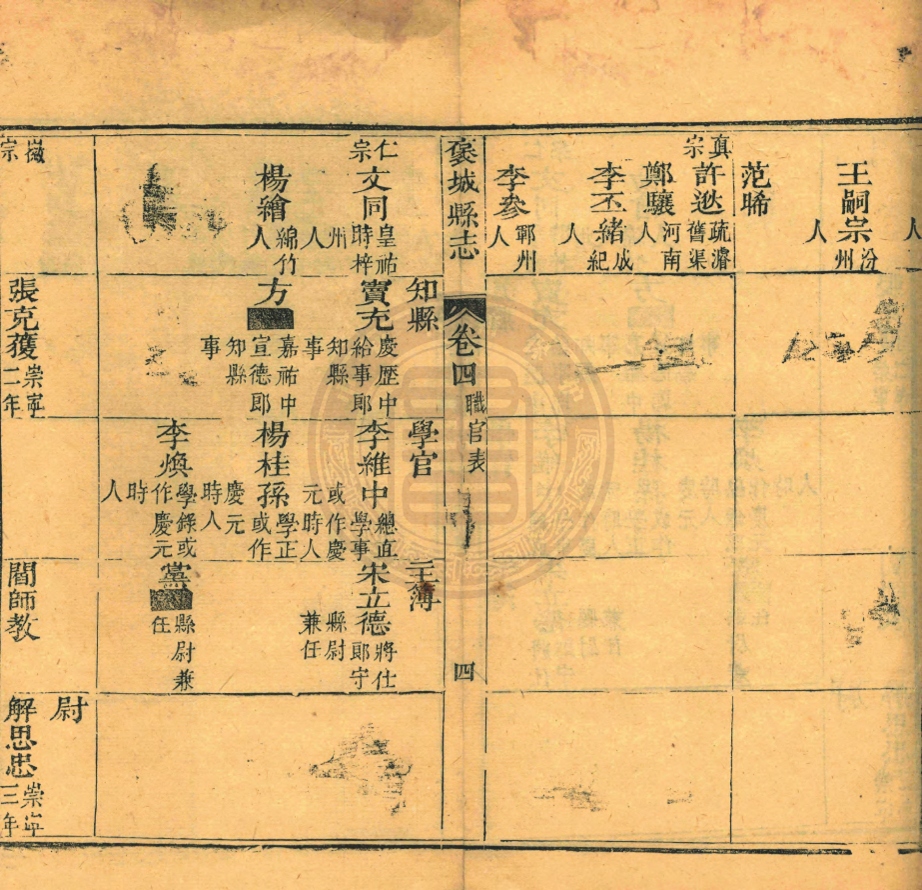 人
王嗣宗 汾州人
范晞
真宗
許逖 疏濬舊渠
鄭驤 河南人
李丕緒 成紀人
李參 鄆州人
褒城縣志
卷四
職官表
四
仁宗
文同 皇祐時梓州人
楊繪 綿竹人
知縣
竇充 慶歷中給事郎知縣事
方 嘉祐中宣德郎知縣事
學官
李維中 總直學事或作慶元時人
楊桂孫 學正或作慶元時人
李煥 學錄或作慶元時人
主簿
宋立德 將仕郎守縣尉兼任
黨 縣尉兼任
徽宗
張克獲 崇寧二年
閻師教
尉
解思忠 崇寧三年